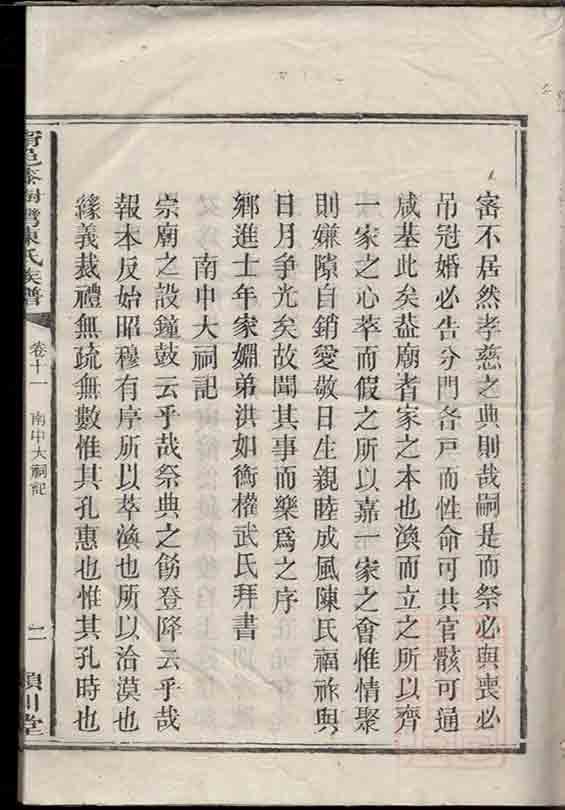 密不居然孝慈之典則哉嗣是而祭必與喪必
吊冠婚必告分門各戸而性命可共官骸可通
咸基此矣葢廟者家之本也渙而立之所以齊
一家之心萃而假之所以嘉一家之會惟情聚
則嫌隙自銷愛敬日生親睦成風陳氏福祚與
日月争光矣故聞其事而樂為之序
鄉進士年家姻弟洪如衡權武氏拜書
南中大祠記
崇廟之設鐘鼓云乎哉祭典之飭登降云乎哉
報本反始昭穆有序所以萃渙也所以洽漠也
緣義裁禮無疏無數惟其孔惠也惟其孔時也
邑 灣陳氏族譜
卷十一
南中大祠記
二
潁川堂